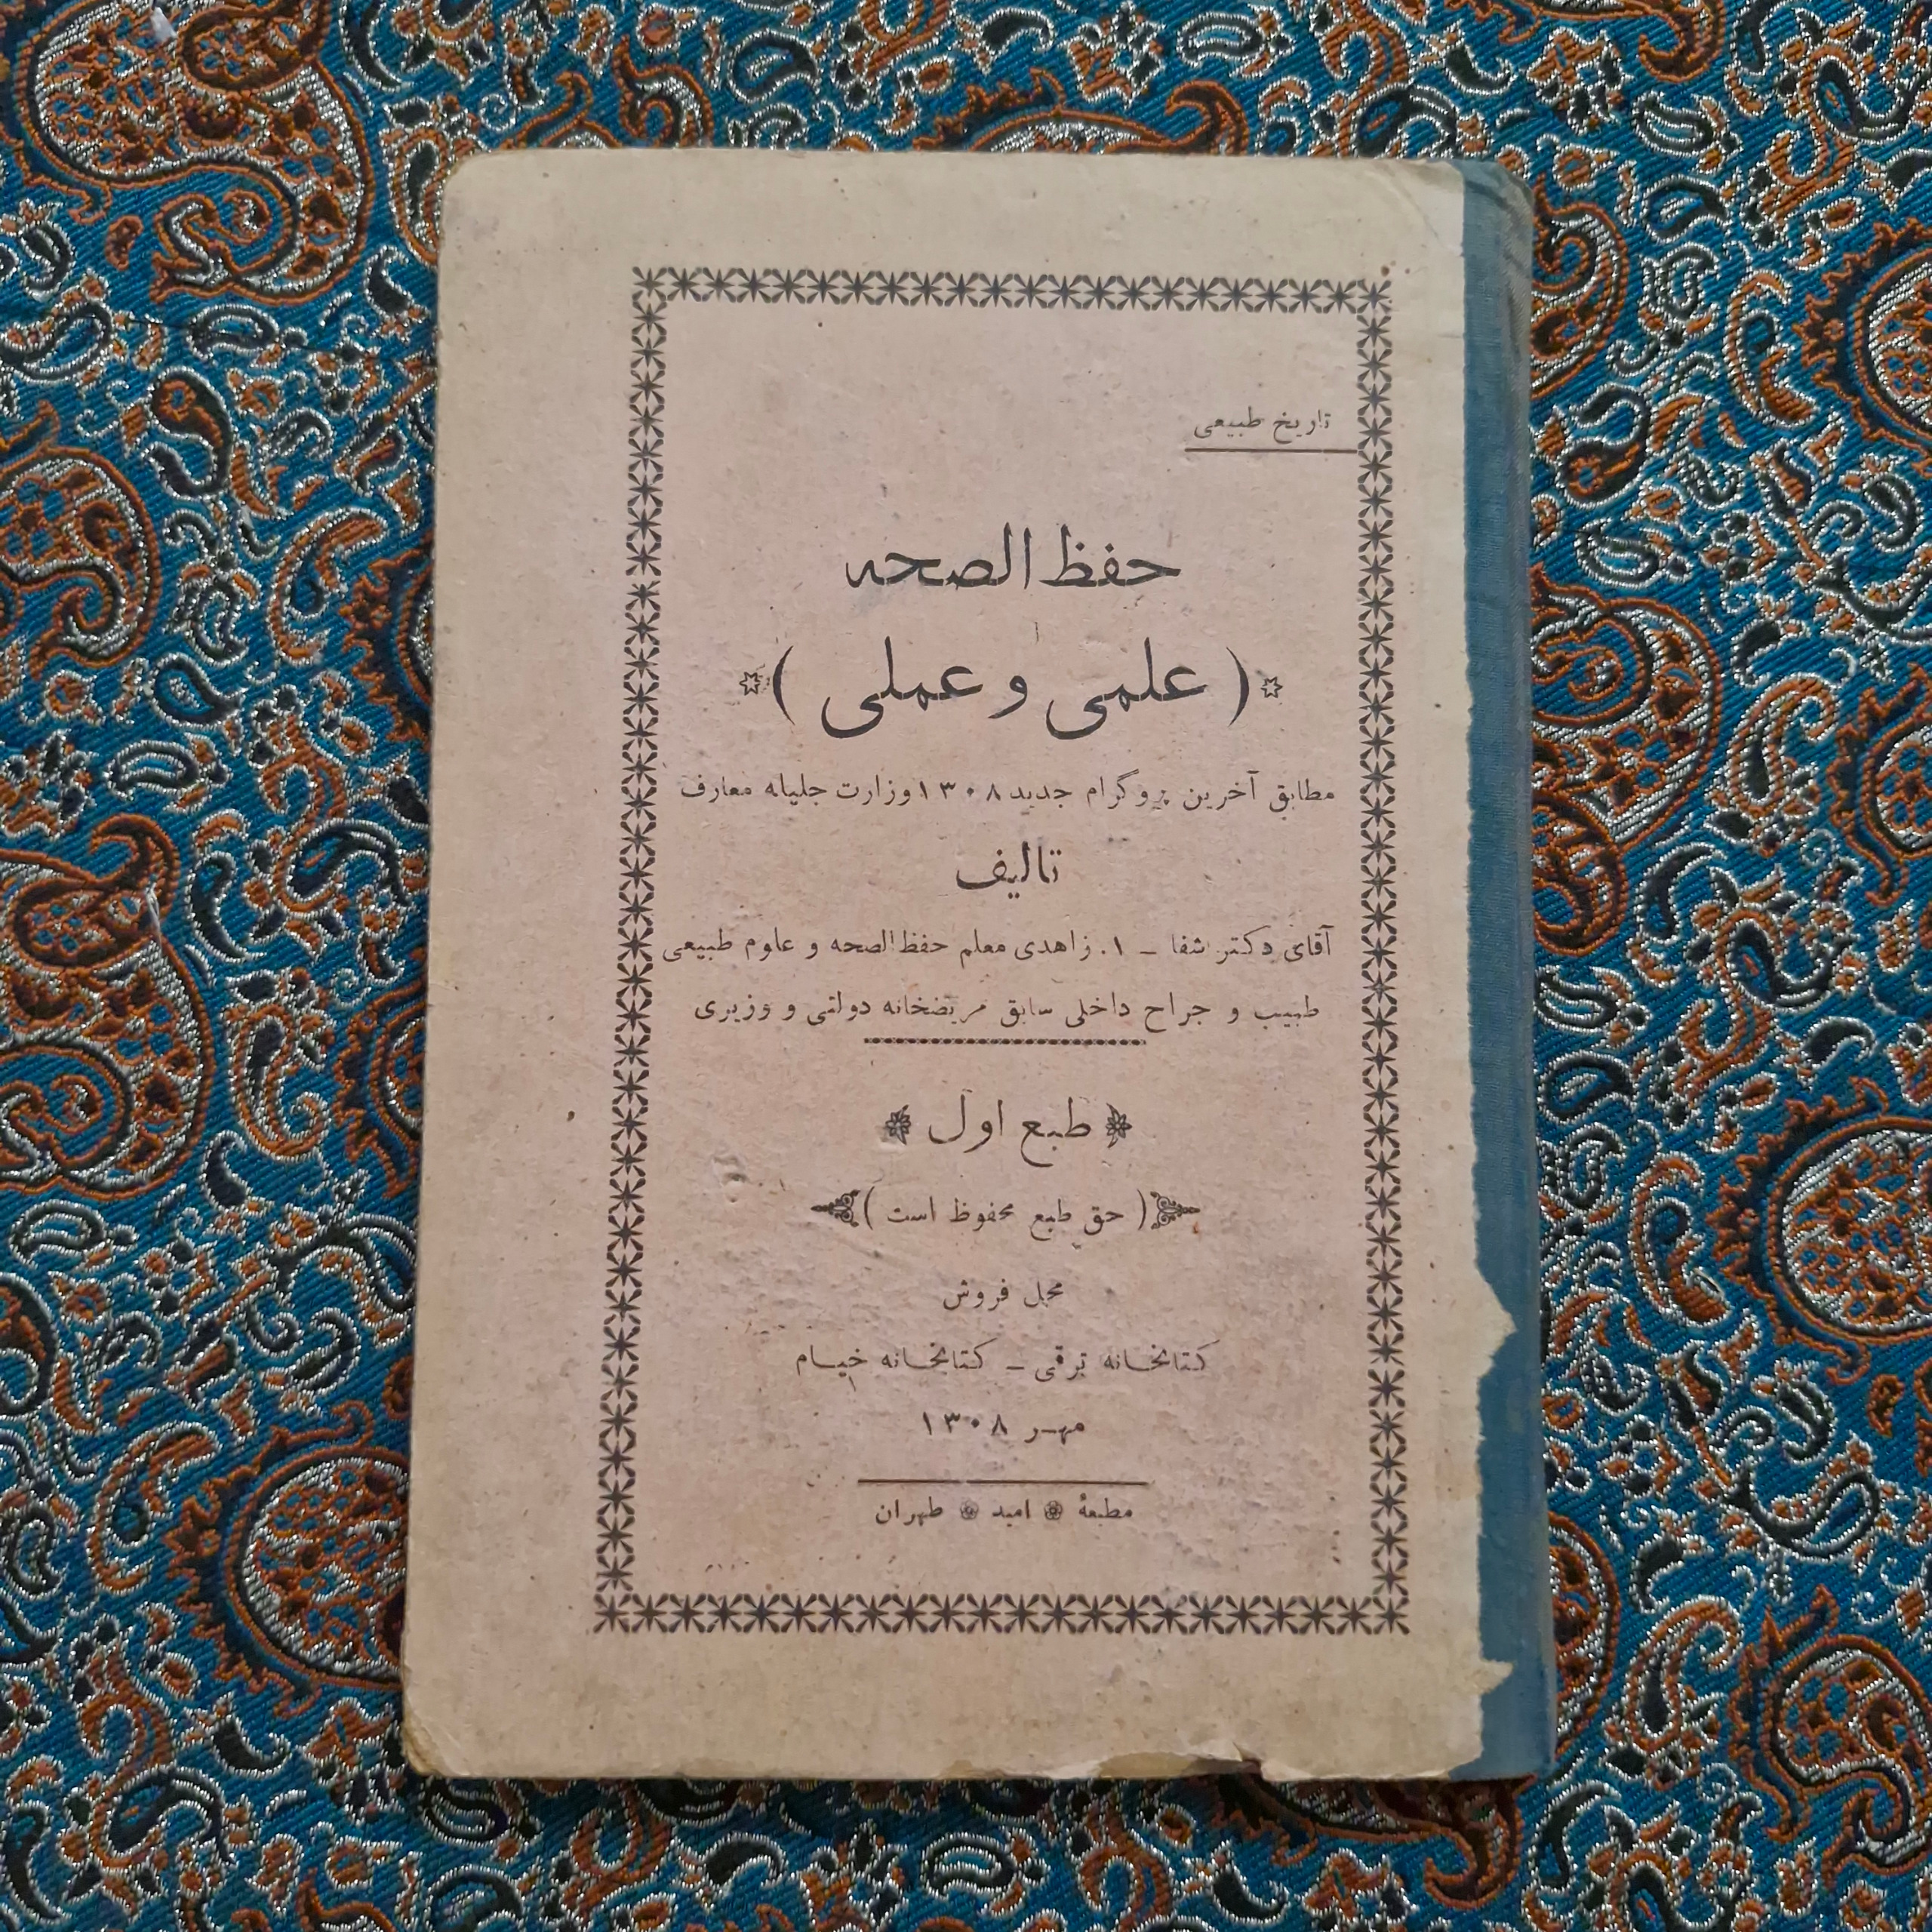 تاریخ طبیعی
حفظ الصحه
( علمی و عملی )
مطابق آخرین پروگرام جدید ۱۳۰۸ وزارت جلیله معارف
تالیف
آقای دکتر شفا – ا. زاهدی معلم حفظ الصحه و علوم طبیعی
طبیب و جراح داخلی سابق مریضخانه دولتی و وزیری
طبع اول
( حق طبع محفوظ است )
محل فروش
کتابخانه ترقی – کتابخانه خیام
مهر ۱۳۰۸
مطبعهٔ امید طهران